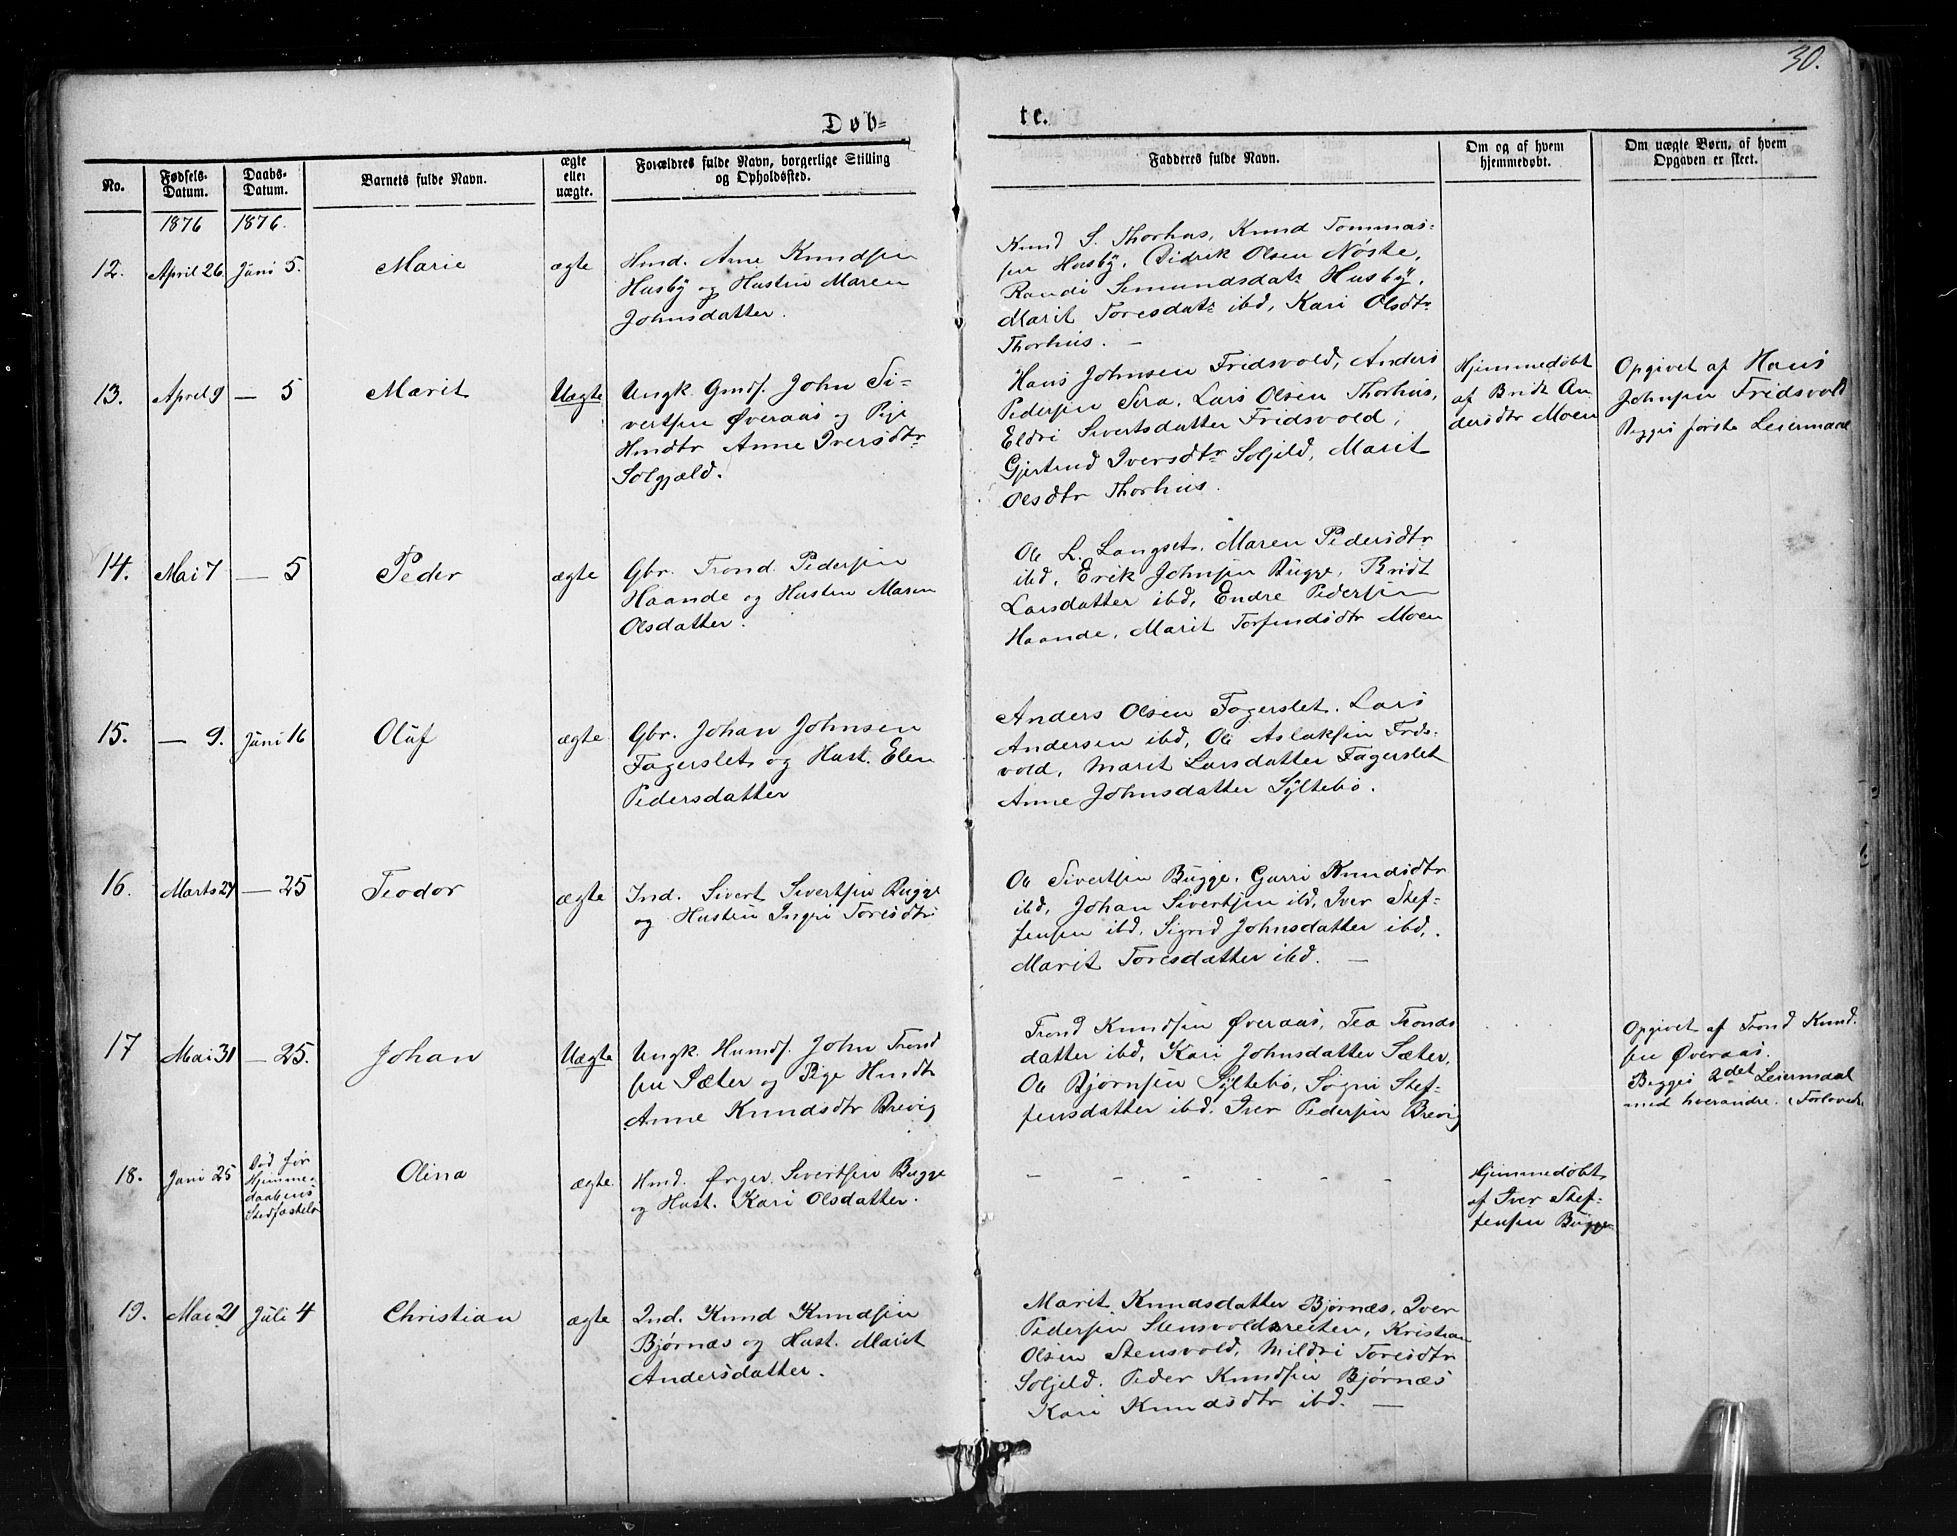 30.
Døb=
te.
No.
Fødsels-
Datum.
Daabs-
Datum.
Barnets fulde Navn.
ægte
eller
uægte.
Forældres fulde Navn, borgerlige Stilling
og Opholdssted.
Faddernes fulde Navn.
Om og af hvem
hjemmedøbt.
Om uægte Børn, af hvem
Opgaven er skeet.
1876
1876.
12.
April 26
Juni 5.
Marie
ægte
Hmd. Arne Knudsen
Husby og Hustru Maren
Johnsdatter.
Knud S. Thorhus, Knud Tommas-
sen Husby, Didrik Olsen Nøste,
Randi Simundsdatr Husby,
Marit Toresdatr ibd, Kari Olsdtr
Thorhus. —
13.
April 9
— 5
Marit
Uægte
Ungk. Gmds. John Si-
vertsen Øveraas og Pige
Hmdtr Anne Iversdtr
Solgjæld.
Hans Johnsen Fridsvold, Anders
Pedersen Sira, Lars Olsen Thorhus,
Eldri Sivertsdatter Fridsvold,
Gjertrud Iversdtr Soljeld, Marit
Olsdtr Thorhus.
Hjemmedøbt
af Bridt An
dersdtr Moen
Opgivet af Hans
Johnsen Fridsvold
Begges første Leiermaal
14.
Mai 7
— 5
Peder
ægte
Gbr. Trond Pedersen
Haande og Hustru Maren
Olsdatter.
Ole L. Langset, Maren Pedersdtr
ibd, Erik Johnsen Bugge, Bridt
Larsdatter ibd, Endre Pedersen
Haande, Marit Torfindsdtr Moen
15.
— 9.
Juni 16
Oluf
ægte
Gbr. Johan Johnsen
Fagerslet og Hust. Elen
Pedersdatter
Anders Olsen Fagerslet, Lars
Andersen ibd, Ole Aslaksen Frids-
vold, Marit Larsdatter Fagerslet
Anne Johnsdatter Syltebø.
16.
Marts 27
— 25
Teodor
ægte
Ind. Sivert Sivertsen Bugge
og Hustru Ingri Toresdtr
Ole Sivertsen Bugge, Gurri Knudsdtr
ibd, Johan Sivertsen ibd, Iver Stef-
fensen ibd, Sigrid Johnsdatter ibd,
Marit Toresdatter ibd. —
17
Mai 31
— 25.
Johan
Uægte
Ungk. Humds. John Trond
sen Sæter og Pige Hmdtr
Anne Knudsdtr Brevig
Trond Knudsen Øveraas, Tea Tronds
datter ibd, Kari Johnsdatter Sæter,
Ole Bjørnsen Syltebø, Sogni Stef-
fensdatter ibd. Iver Pedersen Brevig
Opgivet af Trond Knud.
sen Øveraas.
Begges 2det Leiermaal
med hverandre. (Forlovede
18.
Juni 25
Død før
Hjemme-
daabens
Stadfæstelse
Olina
ægte
Hmd. Ørger Sivertsen Bugge
og Hust. Kari Olsdatter.
- - - - - -
Hjemmedøbt
af Iver Stef-
fensen Bugge
19.
Mai 21
Juli 4
Christian
ægte
Ind. Knud Knudsen
Bjørnæs og Hust. Marit
Andersdatter.
Marit Knudsdatter Bjørnæs, Iver
Pedersen Stensvoldsreiten, Kristian
Olsen Stensvold, Mildri Toresdtr
Soljeld. Peder Knudsen Bjørnæs
Kari Knudsdtr ibd. —